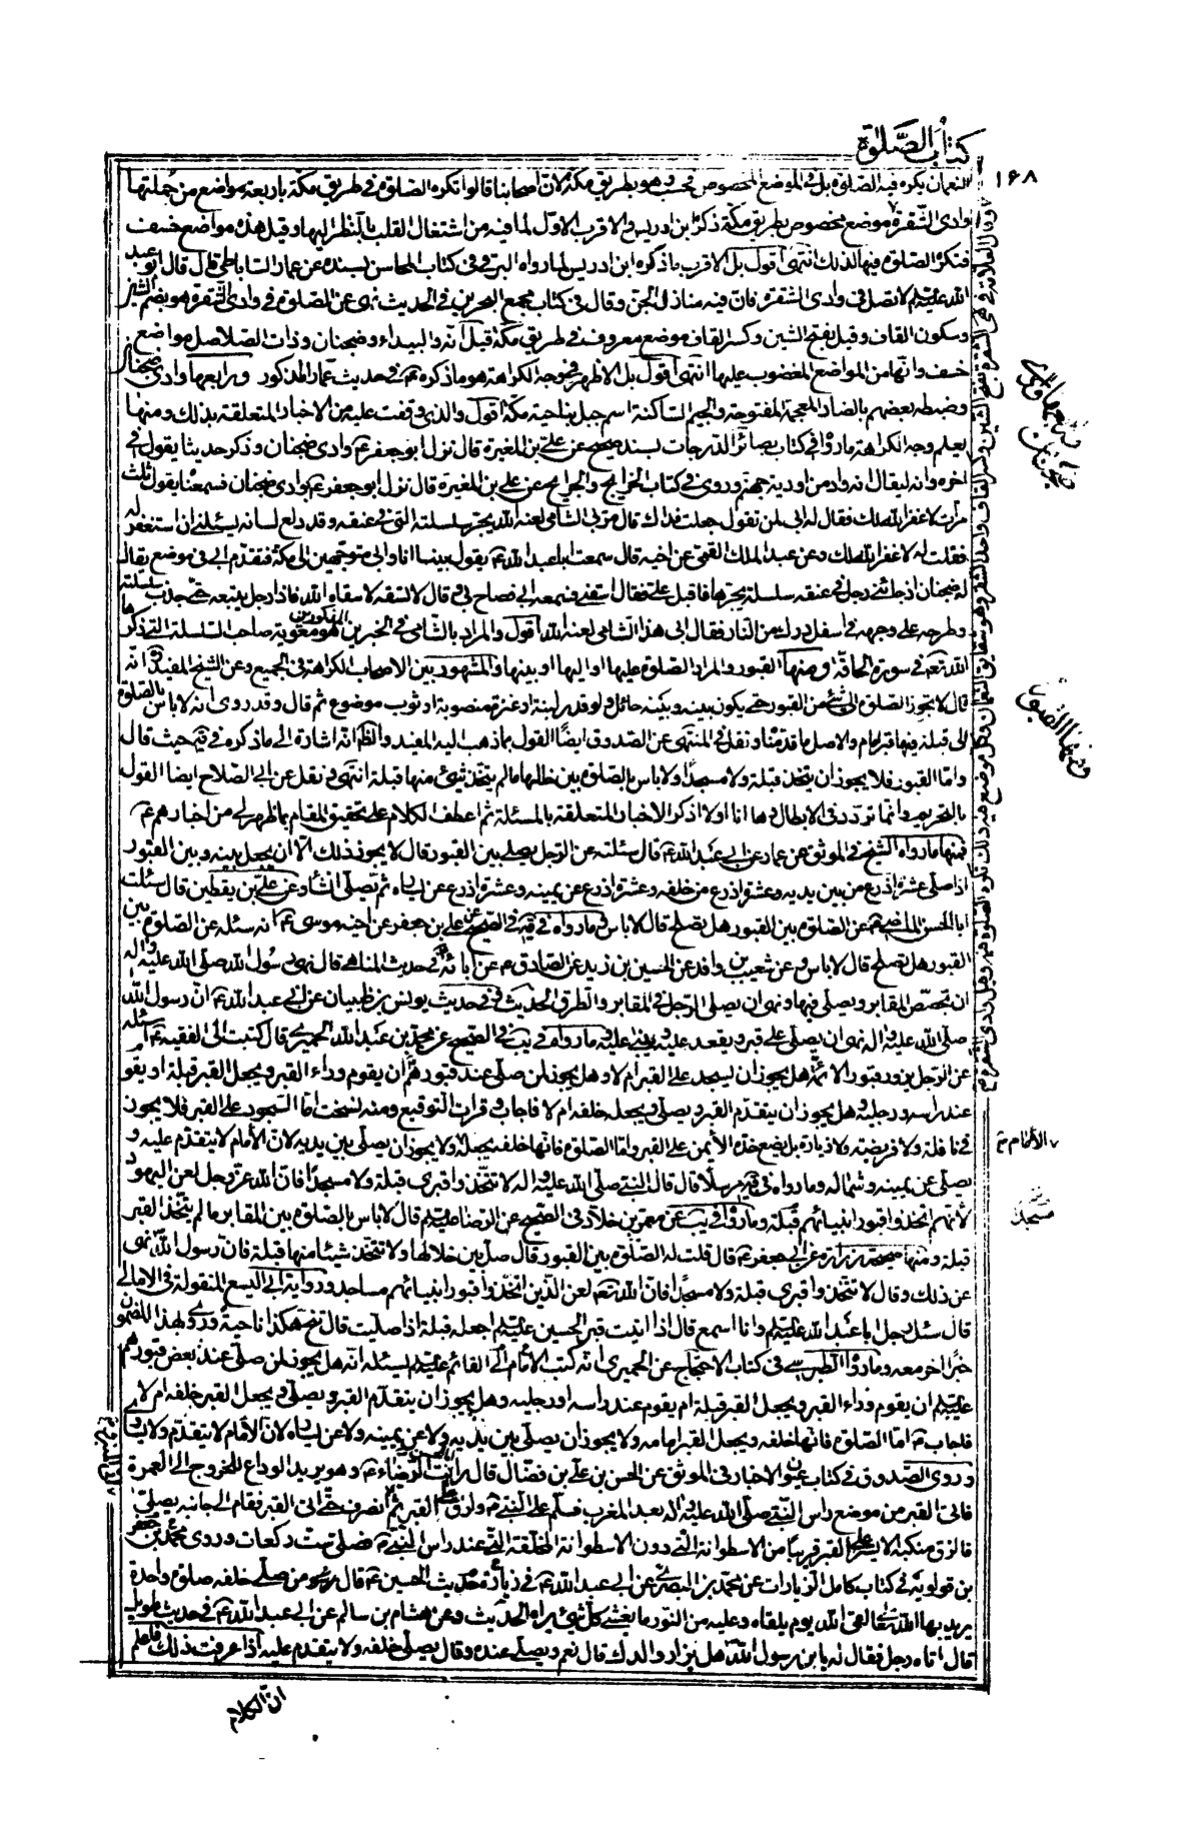 كتاب الصّلوة
١٦٨
النعمان يكره فيه الصّلوة بل في الموضع المخصوص فحسب وهو بطريق مكّة لان اصحابنا قالوا تكره الصّلوة في طريق مكّة باربعة مواضع من جملتها
وادى الشّقرة موضع مخصوص بطريق مكّة ذكره ابن ادريس والاقرب الاوّل لما فيه من اشتغال القلب بالنّظر اليها وقيل هذه مواضع خسف
فتكره الصّلوة فيها لذلك انتهى اقول بل الاقرب ما ذكره ابن ادريس لما رواه البرقى فى كتاب المحاسن بسنده عن عمار الساباطى قال قال ابو عبد
الله عليه السلم لا تصل فى وادى الشقرة فان فيه منازل الجن وقال فى كتاب مجمع البحرين فى الحديث نهى عن الصّلوة فى وادى الشّقرة هو بضم الشين
وسكون القاف وقيل بفتح الشين وكسر القاف موضع معروف فى طريق مكّة قيل انّه والبيداء وضجنان وذات الصّلاصل مواضع
خسف وانّها من المواضع المغضوب عليها انتهى اقول بل الاظهر فى وجه الكراهة هو ما ذكره فى حديث عمّار المذكور ورابعها وادى ضجنان
وضبطه بعضهم بالضاد المعجمة المفتوحة والجيم السّاكنة اسم جبل بناحية مكّة اقول والذى وقفت عليه من الاخبار المتعلقة بذلك ومنها
يعلم وجه الكراهة ما رواه فى كتاب بصائر الدّرجات بسند صحيح عن علىّ بن المغيرة قال نزل ابو جعفر ع وادى ضجنان وذكر حديثا يقول فى
اخره وانه ليقال انه واد من اودية جهنّم وروى فى كتاب الخرايج والجرايح عن على بن المغيرة قال نزل ابو جعفر ع بوادى ضجنان فسمعنا يقول ثلث
مرّات لا غفر الله لك فقال له ابى لمن تقول جعلت فداك قال مرّ بى الشامى لعنه الله يجرّ سلسلته التى فى عنقه وقد دلع لسانه يسئلنى ان استغفر له
فقلت له لا غفر الله لك وعن عبد الملك القمى عن اخيه قال سمعت ابا عبد الله ع يقول بينا انا وابى متوجّهين الى مكّة فتقدّم ابى فى موضع يقال
له ضجنان اذ جائنى رجل فى عنقه سلسلة يجرّها فاقبل علىّ فقال اسقنى فسمعه ابى فصاح بى وقال لا تسقه لا سقاه الله فاذا رجل يتبعه حتّى جذب سلسلته
وطرحه على وجهه فى اسفل درك من النار فقال ابى هذا الشّامى لعنه الله اقول والمراد بالشّامى فى الخبرين المذكورين هو معوية صاحب السّلسلة التى ذكرها
الله تعالى فى سورة الحاقّة ومنها القبور والمراد الصّلوة عليها او اليها او بينها والمشهور بين الاصحاب الكراهة فى الجميع وعن الشيخ المفيد انّه
قال لا يجوز الصّلوة الى شئ من القبور حتى يكون بينه وبينه حائل ولو قدر لبنة او عنزة منصوبة او ثوب موضوع ثم قال وقد روى انه لا باس بالصّلوة
الى قبلة فيها قبر امام والاصل ما قدمناه ونقل فى المنتهى عن الصدوق ايضًا القول بما ذهب اليه المفيد والظاهر انّه اشارة الى ما ذكره فى يه حيث قال
وامّا القبور فلا يجوز ان يتخذ قبلة ولا مسجدًا ولا باس بالصّلوة بين خلالها ما لم يتّخذ شئ منها قبلة انتهى ونقل عن ابى الصّلاح ايضًا القول
بالتحريم وانّما تردّد فى الابطال وها انا اولا اذكر الاخبار المتعلقة بالمسئلة ثم اعطف الكلام على تحقيق المقام بما ظهر لى من اخبارهم ع
فمنها ما رواه الشّيخ فى الموثق عن عمار عن ابى عبد الله ع قال سئلته عن الرّجل يصلى بين القبور قال لا يجوز ذلك الّا ان يجعل بينه وبين القبور
اذا صلّى عشرة اذرع من بين يديه وعشرة اذرع من خلفه وعشرة اذرع عن يمينه وعشرة اذرع عن يساره ثم يصلّى ان شاء وعن علىّ بن يقطين قال سئلت
ابا الحسن الماضى ع عن الصّلوة بين القبور هل يصلح قال لا باس وما رواه فى يه فى الصّحيح عن على بن جعفر عن اخيه موسى ع انه سئله عن الصّلوة بين
القبور هل يصلح قال لا باس وعن شعيب بن واقد عن الحسين بن زيد عن الصّادق ع عن ابائه فى حديث المناهى قال نهى رسول الله صلّى الله عليه واله
ان تجصّص المقابر ويصلى فيها ونهى ان يصلى الرّجل فى المقابر والطّرق الحديث وفى حديث يونس بن ظبيان عن ابى عبد الله ع انّ رسول الله
صلّى الله عليه واله نهى ان يصلى على قبر او يقعد عليه او يبنى عليه وما رواه فى يب فى الصّحيح عن محمّد بن عبد الله الحميرى قال كتبت الى الفقيه ع اسئله
عن الرّجل يزور قبور الائمّة هل يجوز ان يسجد على القبر ام لا وهل يجوز لمن صلّى عند قبورهم ان يقوم وراء القبر ويجعل القبر قبلة او يقوم
عند راسه ورجليه وهل يجوز ان يتقدّم القبر ويصلّى ويجعله خلفه ام لا فاجاب وقرات التّوقيع ومنه نسخت امّا السّجود على القبر فلا يجوز
فى نافلة ولا فريضة ولا زيارة بل يضع خدّه الأيمن على القبر وامّا الصّلوة فانّها خلفه يجعله الأمام ولا يجوز ان يصلّى بين يديه لانّ الأمام لا يتقدّم عليه و
يصلّى عن يمينه وشماله وما رواه فى يه مرسلًا قال قال النّبى صلّى الله عليه واله لا تتّخذوا قبرى قبلة ولا مسجدًا فانّ الله عزّ وجل لعن اليهود
لانّهم اتّخذوا قبور انبيائهم قبلة وما رواه فى يب عن معمر بن خلّاد فى الصّحيح عن الرّضا عليه السلم قال لا باس بالصّلوة بين المقابر ما لم يتّخذ القبر
قبلة ومنها صحيحة زرارة عن ابى جعفر ع قال قلت له الصّلوة بين القبور قال صلّ بين خلالها ولا تتّخذ شيئًا منها قبلة فانّ رسول الله ص نهى
عن ذلك وقال لا تتّخذوا قبرى قبلة ولا مسجدًا فانّ الله تعالى لعن الّذين اتّخذوا قبور انبيائهم مساجد ورواية ابى اليسع المنقولة فى الامالى
قال سئل رجل ابا عبد الله عليه السلم وانا اسمع قال اذا اتيت قبر الحسين عليه السلم اجعله قبلة اذا صلّيت قال تنحّ هكذا ناحية وروى بهذا المضمون
خبرًا اخر معه وما رواه الطّبرسى فى كتاب الاحتجاج عن الحميرى انّه كتب الى القائم عليه السلم يسئله انّه هل يجوز لمن صلّى عند بعض قبورهم
عليهم السلم ان يقوم وراء القبر ويجعل القبر قبلة ام يقوم عند راسه او رجليه وهل يجوز ان يتقدّم القبر ويصلّى ويجعل القبر خلفه ام لا
فاجاب ع امّا الصّلوة فانّها خلفه ويجعل القبر امامه ولا يجوز ان يصلّى بين يديه ولا عن يمينه ولا عن يساره لانّ الأمام لا يتقدّم ولا يساوى
وروى الصّدوق فى كتاب عيون الاخبار فى الموثق عن الحسن بن على بن فضّال قال رايت ابا الحسن الرّضا ع وهو يريد الوداع للخروج الى العمرة
فاتى القبر من موضع راس النّبى صلّى الله عليه واله بعد المغرب فسلّم على النّبى ص ولزق بالقبر ثم انصرف حتّى اتى القبر فقام الى جانبه يصلّى
فالزق منكبه الايسر بالقبر قريبًا من الاسطوانة الّتى دون الاسطوانة المخلّقة الّتى عند راس النّبى ص فصلّى ستّ ركعات وروى جعفر بن محمّد
بن قولويه فى كتاب كامل الزيارات عن محمّد البصرى عن ابى عبد الله ع فى زيارة حديث الحسين ع قال من صلّى خلفه صلوة واحدة
يريد بها الله تعالى لقى الله يوم يلقاه وعليه من النّور ما يغشى كلّ شئ يراه الحديث وعن هشام بن سالم عن ابى عبد الله ع فى حديث طويل
قال اتاه رجل فقال له يابن رسول الله هل يزار والدك قال نعم ويصلّى عنده وقال يصلّى خلفه ولا يتقدم عليه اذا عرفت ذلك فاعلم
انّ الكلام
الأمام